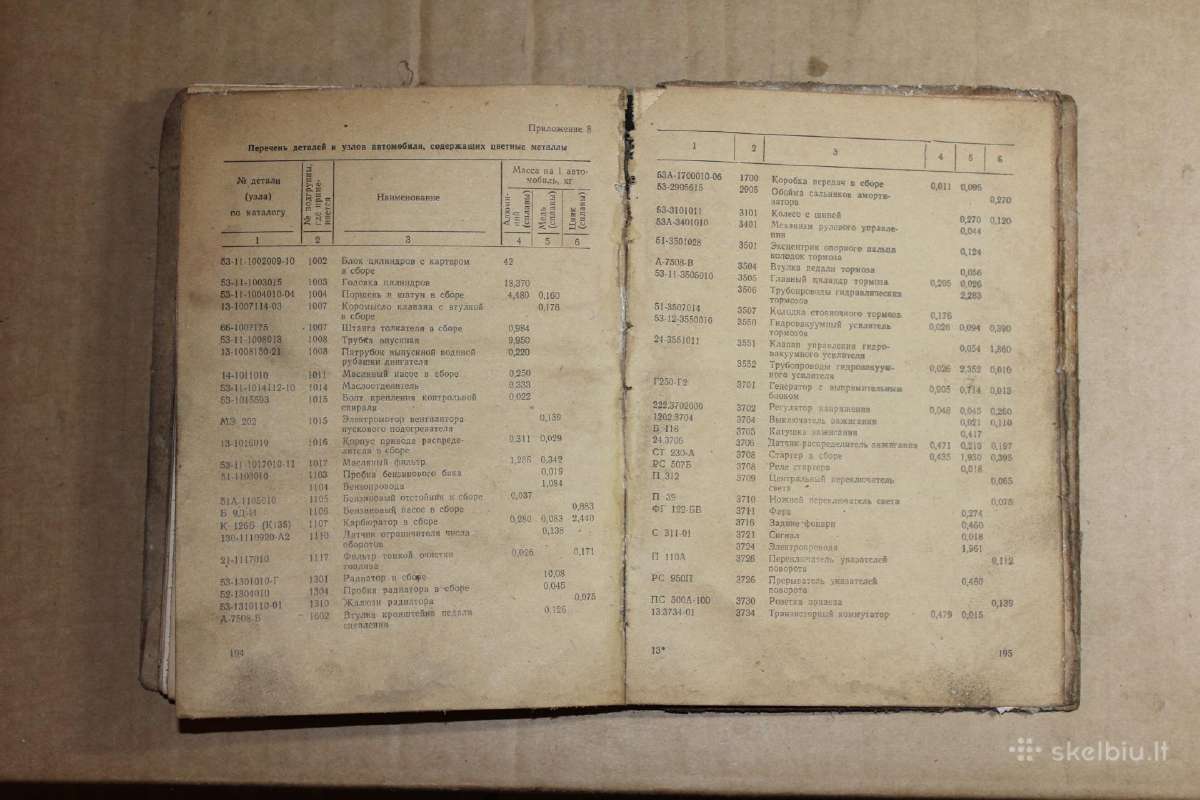 Приложение 8
Перечень деталей и узлов автомобиля, содержащих цветные металлы
№ детали (узла) по каталогу № подгруппы, где применяется Наименование Масса на 1 автомобиль, кг Алюминий (сплавы) Медь (сплавы) Цинк (сплавы)
1 2 3 4 5 6
53-11-1002009-10 1002 Блок цилиндров с картером 42
в сборе
53-11-1003015 1003 Головка цилиндров 18,370
53-11-1004010-04 1004 Поршень и шатун в сборе 4,480 0,160
13-1007114-03 1007 Коромысло клапана с втулкой 0,176
в сборе
66-1007175 1007 Штанга толкателя в сборе 0,984
53-11-1008013 1008 Трубка впускная 9,950
13-1008130-21 1008 Патрубок выпускной водяной 0,220
рубашки двигателя
14-1011010 1011 Масляный насос в сборе 0,250
53-11-1014112-10 1014 Маслоотделитель 0,333
53-1015593 1015 Болт крепления контрольной 0,022
спирали
МЭ 202 1015 Электромотор вентилятора 0,159
пускового подогревателя
13-1016010 1016 Корпус привода распреде- 0,311 0,029
лителя в сборе
53-11-1017010-11 1017 Масляный фильтр 1,285 0,342
51-1103010 1103 Пробка бензинового бака 0,019
1104 Бензопровода 1,084
51А-1105010 1105 Бензиновый отстойник в сборе 0,037
Б 9Д-И 1106 Бензиновый насос в сборе 0,883
К 126Б (К-135) 1107 Карбюратор в сборе 0,280 0,083 2,440
130-1110920-А2 1110 Датчик ограничителя числа 0,138
оборотов
21-1117010 1117 Фильтр тонкой очистки 0,026 0,171
топлива
53-1301010-Г 1301 Радиатор в сборе 10,08
52-1304010 1304 Пробка радиатора в сборе 0,045
53-1310110-01 1310 Жалюзи радиатора 0,075
А-7508-Б 1602 Втулка кронштейна педали 0,126
сцепления
194
1 2 3 4 5 6
53А-1700010-06 1700 Коробка передач в сборе 0,011 0,095
53-2905615 2905 Обойма сальников аморти- 0,270
затора
53-3101011 3101 Колесо с шиной 0,270 0,120
53А-3401010 3401 Механизм рулового управле- 0,044
ния
51-3501028 3501 Эксцентрик опорного пальца 0,124
колодок тормоза
А-7508-В 3504 Втулка педали тормоза 0,056
53-11-3505010 3505 Главный цилиндр тормоза 0,205 0,026
3506 Трубопроводы гидравлических 2,283
тормозов
51-3507014 3507 Колодка стояночного тормоза 0,176
53-12-3550010 3550 Гидровакуумный усилитель 0,026 0,094 0,390
тормозов
24-3551011 3551 Клапан управления гидро- 0,054 1,860
вакуумного усилителя
3552 Трубопроводы гидровакуум- 0,026 2,352 0,010
ного усилителя
Г250-Г2 3701 Генератор с выпрямительным 0,905 0,714 0,013
блоком
222.3702000 3702 Регулятор напряжения 0,048 0,045 0,260
1202.3704 3704 Выключатель зажигания 0,021 0,110
Б 116 3705 Катушка зажигания 0,417
24.3706 3706 Датчик-распределитель зажигания 0,471 0,210 0,197
СТ 230-А 3708 Стартер в сборе 0,435 1,950 0,395
РС 507Б 3708 Реле стартера 0,018
П 312 3709 Центральный переключатель 0,065
света
П 39 3710 Ножной переключатель света 0,075
ФГ 122-БВ 3711 Фара 0,274
3716 Задние фонари 0,460
С 311-01 3721 Сигнал 0,018
3724 Электропровода 1,961
П 110А 3726 Переключатель указателей 0,112
поворота
РС 950П 3726 Прерыватель указателей 0,460
поворота
ПС 300А-100 3730 Розетка прицепа 0,139
13.3734-01 3734 Транзисторный коммутатор 0,479 0,015
13*
195
skelbiu.lt